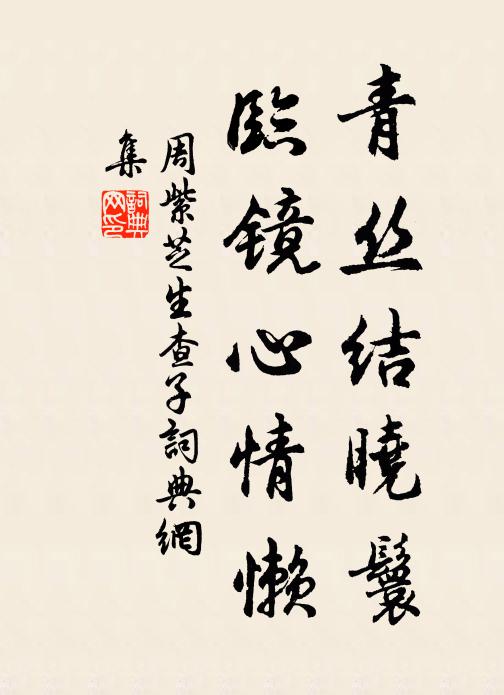 青丝结曉鬟
臨镜心情懒
周紫芝生查子詞典網
集
詞典網印